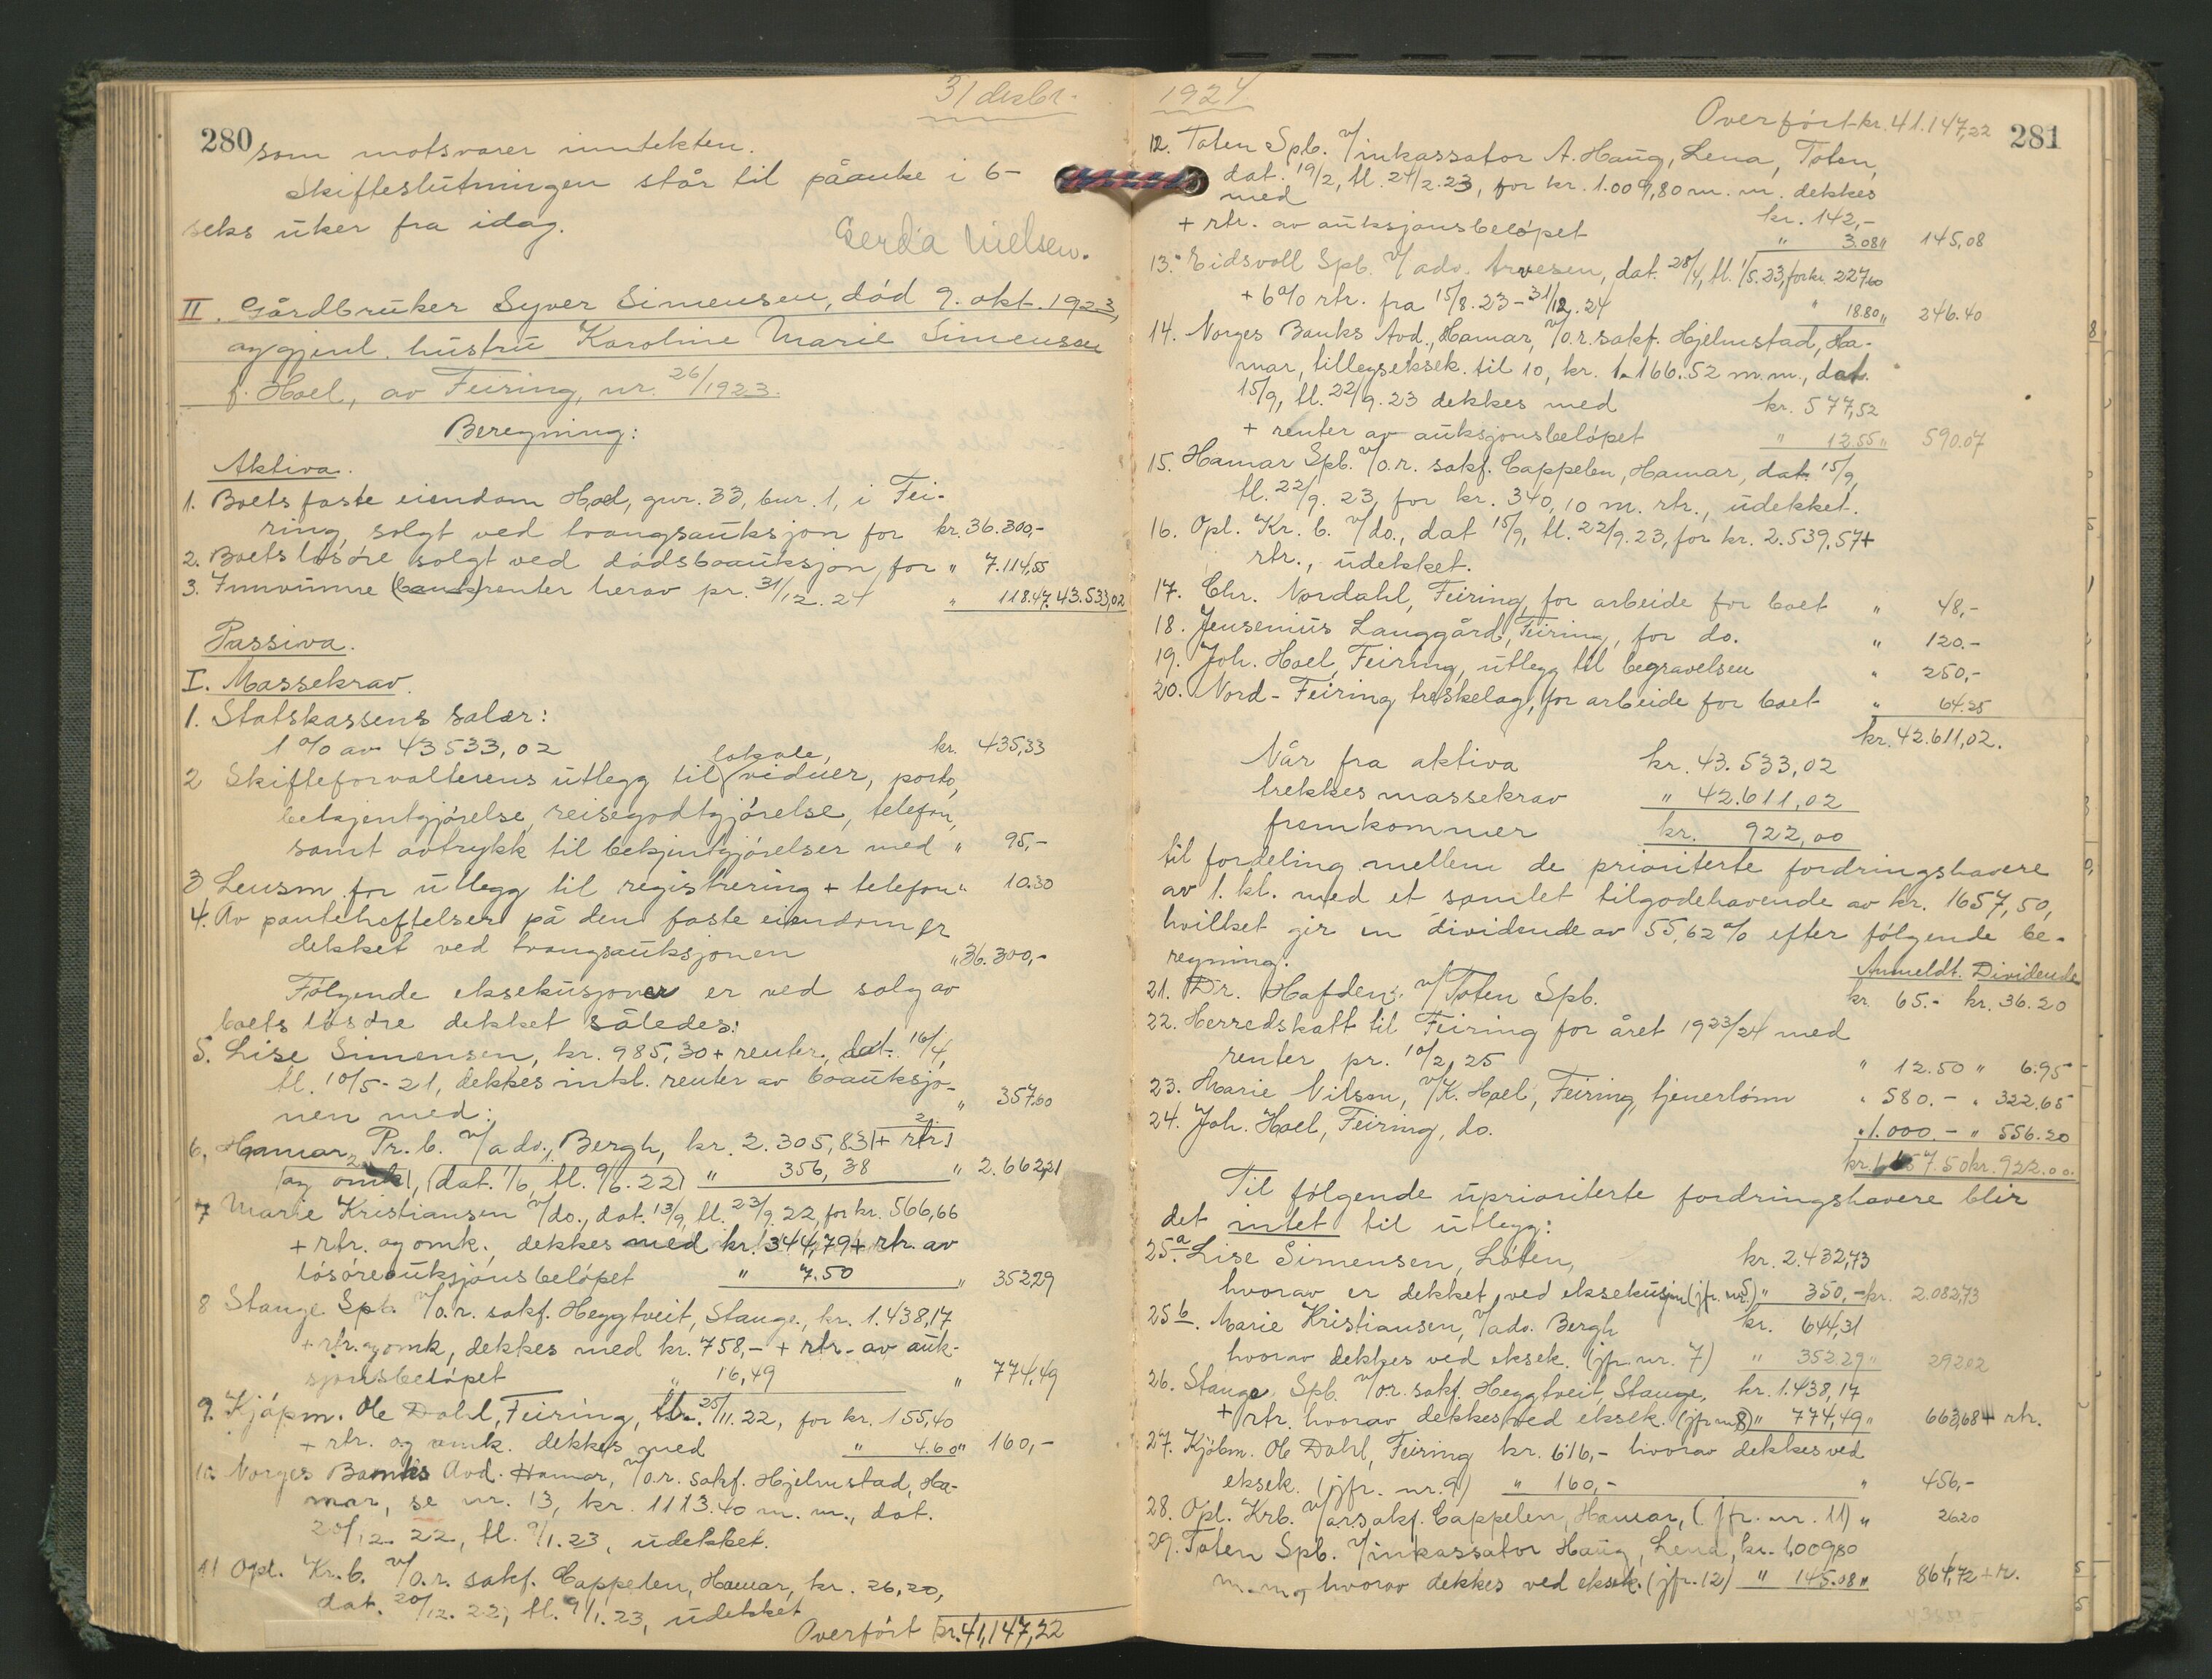 31 desbr.
280
som motsvarer inntekten.
Skifteslutningen står til påanke i 6-
seks uker fra idag.
Gerda Nielsen.
II. Gårdbruker Syver Simensen, död 9. okt. 1923,
og gjenl. hustru Karoline Marie Simensen
f. Hoel, av Feiring, nr. 26/1923.
Beregning:
Aktiva.
1. Boets faste eiendom Hoel, gnr. 33, bnr. 1, i Fei-
ring, solgt ved tvangsauksjon for kr. 36.300,-
2. Boets lösöre solgt ved dödsboauksjon for " 7.114,55
3. Innvunne (bank)renter herav pr. 31/12.24 " 118.47. 43.533,02
Passiva.
I. Massekrav.
1. Statskassens salær:
1 % av 43533,02 kr. 435,33
lokale,
2 Skifteforvalterens utlegg til vidner, porto,
bekjentgjörelse, reisegodtgjörelse, telefon,
samt avtrykk til bekjentgjörelser med " 95,-
3 Lensm. for utlegg til registrering + telefon " 10.30
4. Av panteheftelser på den faste eiendom er
dekket ved tvangsauksjonen " 36.300,-
Fölgende eksekusjoner er ved salg av
boets lösöre dekket således:
5. Lise Simensen, kr. 985,30 + renter, dat. 16/4,
tl. 10/5-21, dekkes inkl. renter av boauksjo-
nen med: " 357.60
6. Hamar Pr. b. v/adv. Bergh, kr. 2.305,83 + rtr
og omk, (dat. 1/6, tl. 9/6.22) " 356,38 " 2.662,21
7 Marie Kristiansen v/do., dat. 13/9, tl. 23/9.22, for kr. 566,66
+ rtr. og omk., dekkes med kr. 344,79 + rtr. av
lösöreauksjonsbelöpet " 7.50 " 352,29
8 Stange Spb. v/o.r. sakf. Heggtveit, Stange, kr. 1.438,17
+ rtr. og omk, dekkes med kr. 758,- + rtr. av auk-
sjonsbelöpet " 16,49 " 774,49
9. Kjöpm. Ole Dahl, Feiring, tl. 25/11.22, for kr. 155,40
+ rtr. og omk. dekkes med " 4.60 " 160,-
10. Norges Banks Avd. Hamar, v/o.r. sakf. Hjelmstad, Ha-
mar, se nr. 13, kr. 1113.40 m. m., dat.
20/12. 22, tl. 9/1.23, udekket.
11 Opl. Kr. b. v/o.r. sakf. Cappelen, Hamar, kr. 26,20,
dat. 20/12. 22, tl. 9/1.23, udekket
Overfört kr. 41,147,22
1924
Overfört kr. 41.147,22
281
12. Toten Spb. v/inkassator A. Haug, Lena, Toten,
dat. 19/2, tl. 24/2.23, for kr. 1.009,80 m. m. dekkes
med kr. 142,-
+ rtr. av auksjonsbelöpet " 3.08 " 145,08
13. Eidsvoll Spb. v/adv. Arvesen, dat. 28/4, tl. 1/5.23, for kr. 227.60
+ 6% rtr. fra 15/8.23 - 31/12.24 " 18.80 " 246.40
14. Norges Banks Avd., Hamar, v/o.r. sakf. Hjelmstad, Ha-
mar, tillegseksek. til 10, kr. 1.166.52 m.m., dat.
15/9, tl. 22/9.23 dekkes med kr. 577,52
+ renter av auksjonsbelöpet " 12.55 " 590.07
15. Hamar Spb. v/o.r. sakf. Cappelen, Hamar, dat. 15/9,
tl. 22/9. 23, for kr. 340,10 m. rtr., udekket.
16. Opl. Kr. b. v/do., dat 15/9, tl. 22/9.23, for kr. 2.539,57 +
rtr., udekket.
17. Chr. Nordahl, Feiring, for arbeide for boet " 48,-
18. Jensenius Langgård, Feiring, for do. " 120.-
19. Joh. Hoel, Feiring, utlegg til begravelsen " 250,-
20. Nord-Feiring treskelag, for arbeide for boet " 64.25
kr. 42.611,02.
Når fra aktiva kr. 43.533,02
trekkes massekrav " 42.611,02
fremkommer kr. 922,00
til fordeling mellem de prioriterte fordringshavere
av 1. kl. med et samlet tilgodehavende av kr. 1657,50,
hvilket gir en dividende av 55,62% efter fölgende be-
regning:
Anmeldt. Dividende
21. Dr. Hafden v/Toten Spb. kr. 65.- kr. 36.20
22. Herredskatt til Feiring for året 1923/24 med
renter pr. 10/2, 25 " 12.50 " 6.95
23. Marie Nilsen, v/K. Hoel, Feiring, tjenerlönn " 580.- " 322.65
24. Joh. Hoel, Feiring, do. " 1.000.- " 556.20
kr. 1657.50 kr. 922.00.
Til fölgende uprioriterte fordringshavere blir
det intet til utlegg:
25a. Lise Simensen, Löten, kr. 2.432,73
hvorav er dekket ved eksekusjon (jfr. nr. 5) " 350,- kr. 2.082,73
25b. Marie Kristiansen, v/adv. Bergh kr. 644,31
hvorav dekkes ved eksek. (jfr. nr. 7) " 352.29 " 292.02
26. Stange Spb. v/o.r. sakf. Heggtveit, Stange, kr. 1.438,17
+ rtr. hvorav dekkes ved eksek. (jfr nr. 8) " 774,49 " 663,68 + rtr.
27. Kjöbm. Ole Dahl, Feiring kr. 616,- hvorav dekkes ved
eksek. (jfr. nr. 9) " 160,- " 456,-
28. Opl. Krb. v/o.r. sakf. Cappelen, Hamar, (jfr. nr. 11) " 26.20
29. Toten Spb. v/inkassator Haug, Lena, kr. 1,009,80
m. m, hvorav dekkes ved eksek. (jfr. 12) " 145.08 " 864,72 + r.